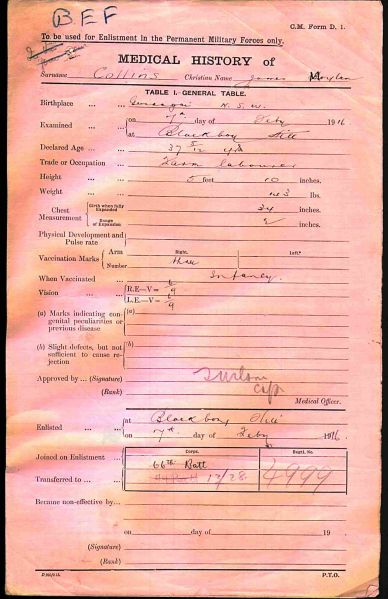 B.E.F
C.M. Form D. 1.
To be used for Enlistment in the Permanent Military Forces only.
MEDICAL HISTORY of
Surname Collins Christian Name James
TABLE I.—GENERAL TABLE.
Birthplace ... ... N.S.W.
Examined ... ... on 7th day of Feby 1916
at Blackboy Hill
Declared Age ... ... 37 5/12 yrs
Trade or Occupation ... Farm labourer
Height ... ... 5 feet 10 inches.
Weight ... ... 143 lbs.
Chest Measurement Girth when fully Expanded 34 inches.
Range of Expansion 2 inches.
Physical Development and Pulse rate
Right. Left.
Vaccination Marks Arm
Number three
When Vaccinated ... Infancy.
Vision ... ... R.E.—V= 6/9
L.E.—V= 6/9
(a) Marks indicating congenital peculiarities or previous disease (a)
(b) Slight defects, but not sufficient to cause rejection (b)
Approved by ... (Signature)
(Rank) Capt
Medical Officer.
at Blackboy Hill
Enlisted ... ... on 7th day of Feby 1916
Corps. Regtl. No.
Joined on Enlistment ... 66th Batt 4999
Transferred to ... ... 12/28
Became non-effective by...
on day of 19
(Signature)
(Rank)
P.T.O.